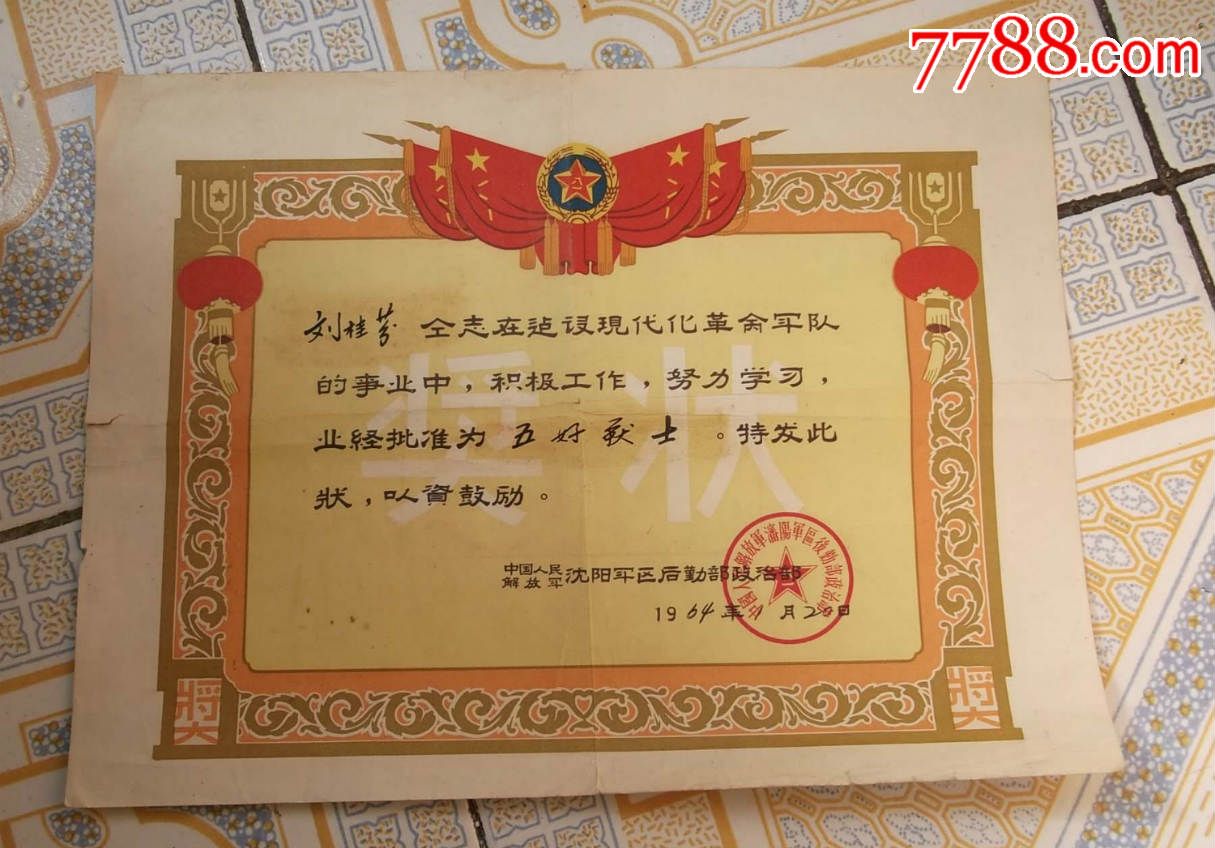 7788.com
刘桂芬 仝志在建设现代化革命军队
的事业中，积极工作，努力学习，
业经批准为 五好战士 。特发此
狀，以資鼓励。
奖状
中国人民
解放军 沈阳军区后勤部政治部
1964年1月20日
中国人民解放軍瀋陽軍區後勤部政治部
奖
奖